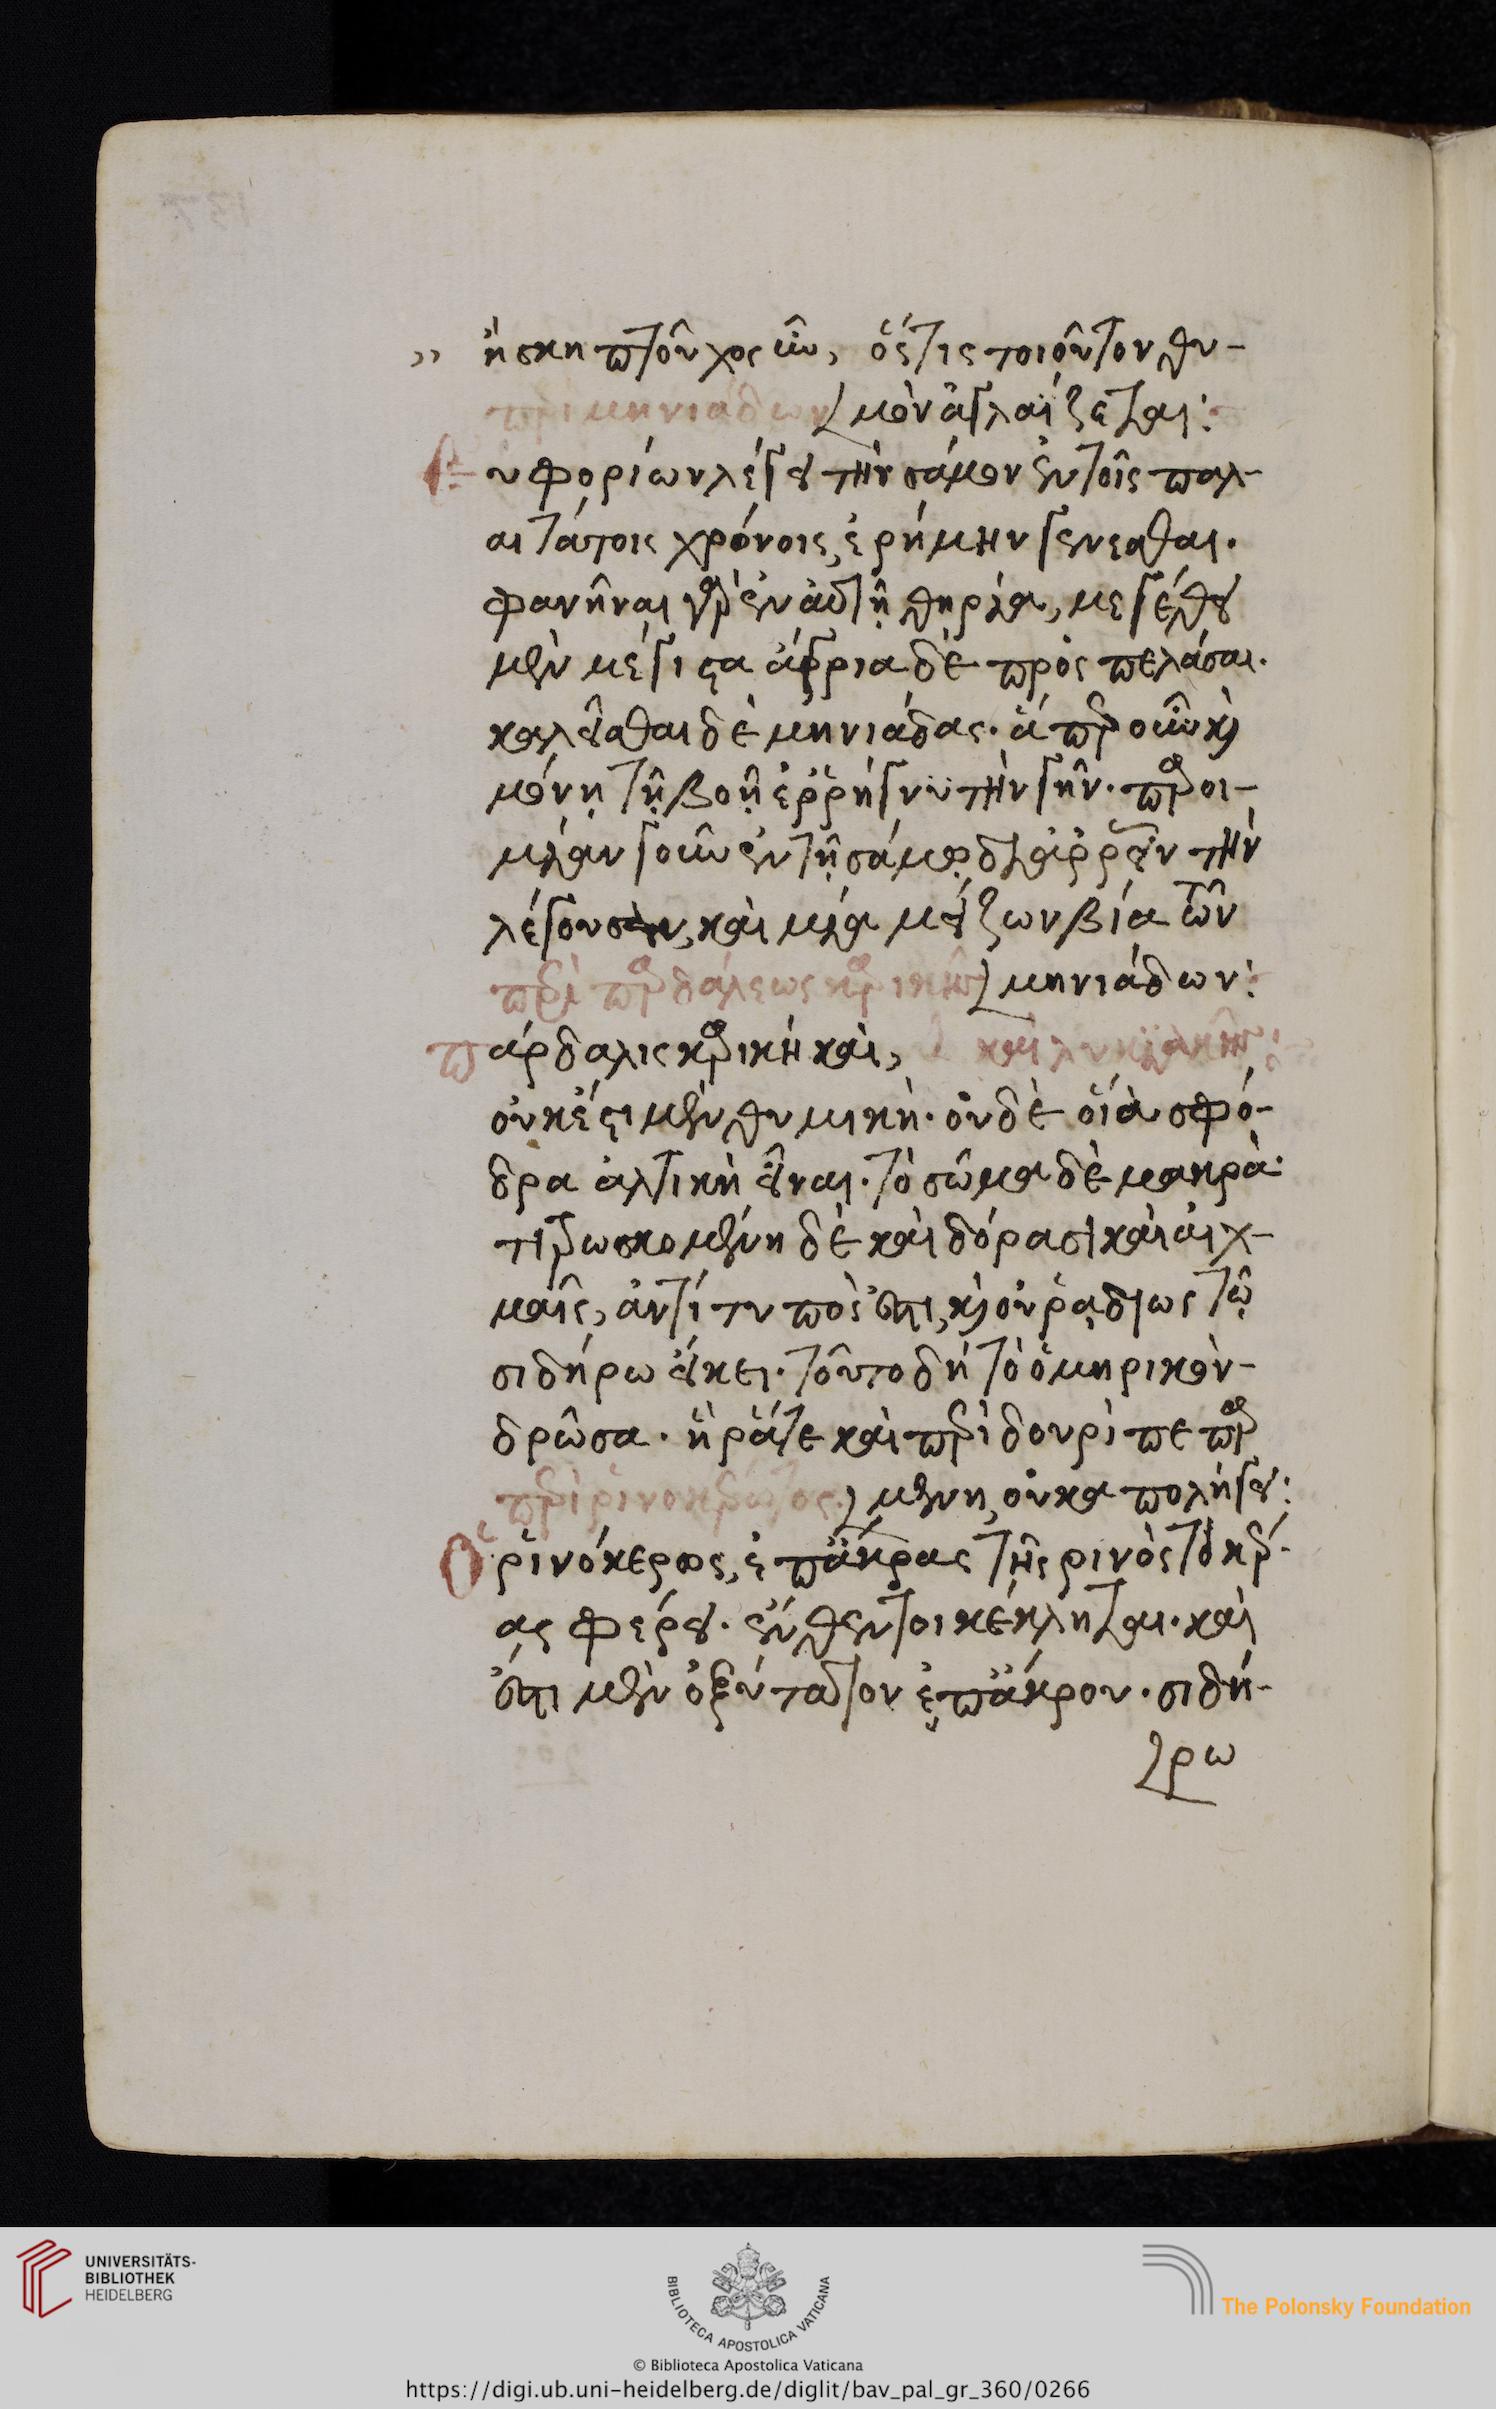 ,, ἡ σκηπτοῦχος ἵν, ὅστις τοιοῦτον θυ-
περὶ μηνιάδων μὸν ἀγλαΐζεται:
Εὐφορίων λέγει τὴν σάμον ἐν τοῖς παλ-
αιτάτοις χρόνοις, ἐρήμην γενέσθαι.
φανῆναι γὰρ ἐν αὐτῇ θηρία, μεγέθει
μὲν μέγιστα ἄγρια δὲ προσπελάσαι.
καλεῖσθαι δὲ μηνιάδας. ἅπερ οὖν καὶ
μόνῃ τῇ βοῇ ἐρρήγνυ τὴν γῆν. παροι-
μίαν γοῦν ἐν τῇ σάμῳ διαρρεῖν τὴν
λέγουσαν, καὶ μία μείζων βία τῶν
περὶ παρδάλεως καρικῆς μηνιάδων:
πάρδαλις καρικὴ καὶ, καὶ λυκιακῆς:
οὐκ ἔστι μὲν θυμικὴ. οὐδὲ οἵα σφό-
δρα ἁλτικὴ εἶναι. τὸ σῶμα δὲ μακρὰ.
τιτρωσκομένη δὲ καὶ δόρασι καὶ αἰχ-
μαῖς, ἀντίτυπός ἐστι, καὶ οὐ ῥᾳδίως τῷ
σιδήρω εἴκει. τοῦτο δὴ τὸ ὁμηρικὸν-
δρῶσα. ἥ ῥά τε καὶ περὶ δουρὶ πεπαρ
περὶ ῥινοκέρωτος. μένη, οὐκ ἀπολήγει:
Ὁ ῥινόκερως, ἐπ' ἄκρας τῆς ῥινὸς τὸ κέρ-
ας φέρει. ἔνθεν τοι κέκληται. καὶ
ἔστι μὲν ὀξύτατον ἐπ' ἄκρον. σιδή-
ρω
UNIVERSITÄTS-
BIBLIOTHEK
HEIDELBERG
BIBLIOTECA APOSTOLICA VATICANA
The Polonsky Foundation
© Biblioteca Apostolica Vaticana
https://digi.ub.uni-heidelberg.de/diglit/bav_pal_gr_360/0266